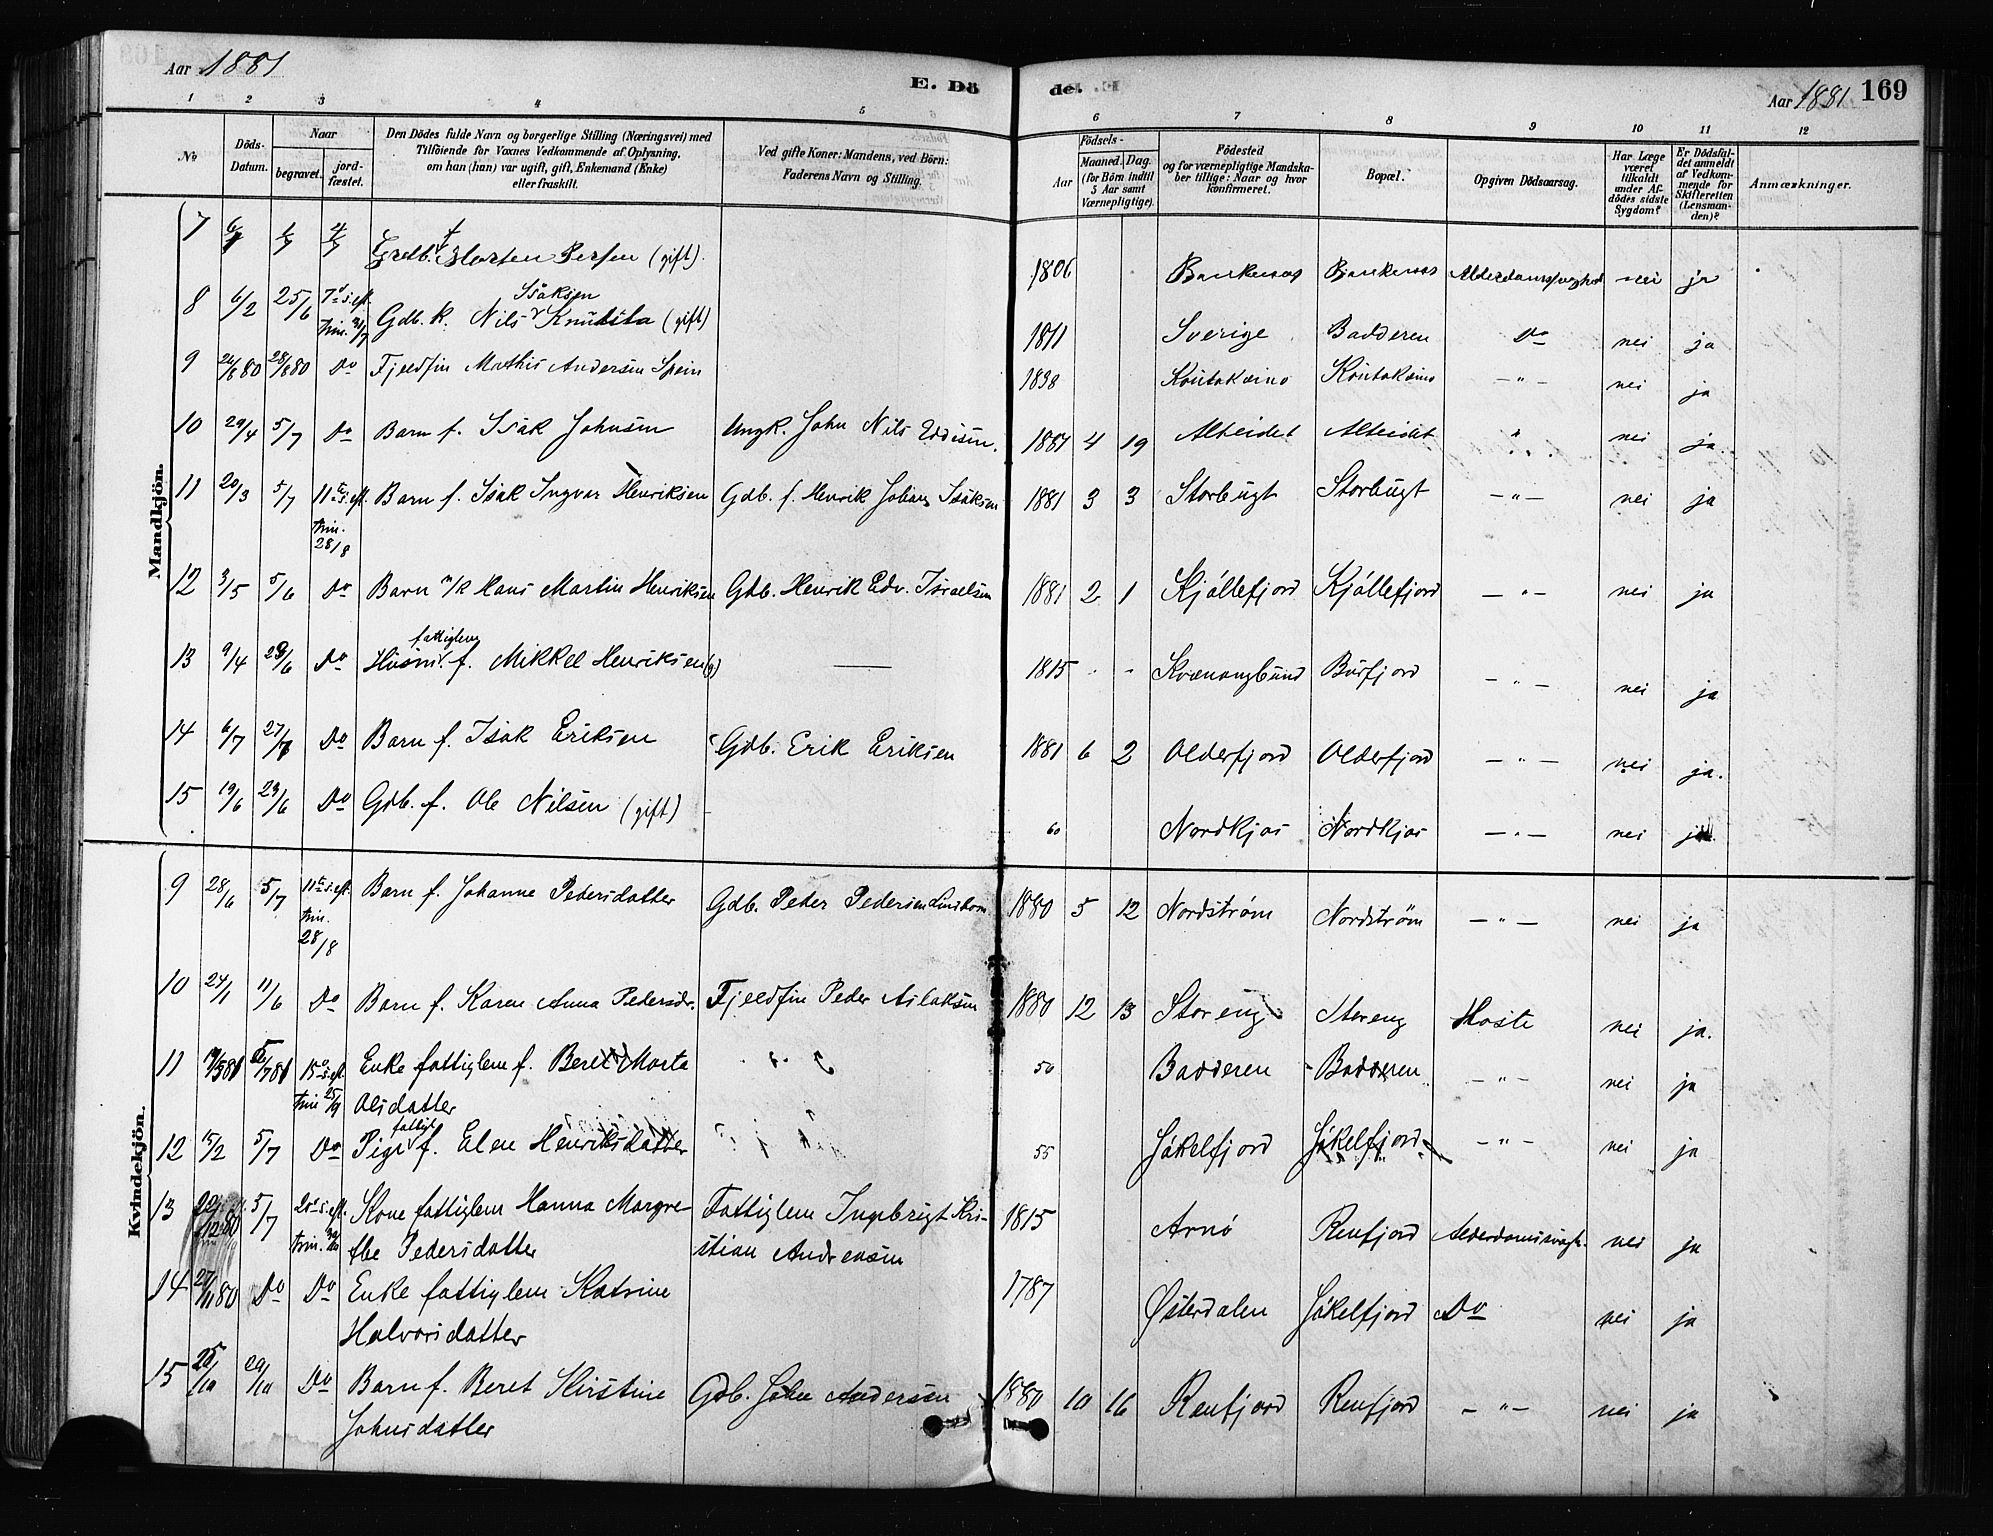 Aar 1881
E. Dö
de.
Aar 1881
169
1 2 3 4 5 6 7 8 9 10 11 12
No
Döds-Datum.
Naar
begravet.
jord-fæstet.
Den Dödes fulde Navn og borgerlige Stilling (Næringsvei) med
Tilföiende for Voxnes Vedkommende af Oplysning,
om han (hun) var ugift, gift, Enkemand (Enke)
eller fraskilt.
Ved gifte Koner: Mandens, ved Börn:
Faderens Navn og Stilling.
Födsels-
Aar
Maaned. Dag.
(for Börn indtil
5 Aar samt
Værnepligtige).
Födested
og for værnepligtige Mandska-
ber tillige: Naar og hvor
konfirmeret.
Bopæl.
Opgiven Dödsaarsag.
Har Læge
været
tilkaldt
under Af-
dödes sidste
Sygdom?
Er Dödsfal-
det anmeldt
af Vedkom-
mende for
Skifteretten
(Lensman-
den)?
Anmærkninger.
Mandkjön.
7 Morten Persen (gift). 1806 nei ja
Isaksen
8 6/2 25/6 7de s. eft. Trin. 31/7 Gdb. k. Nils Knutsta (gift) 1811 Sverige Badderen Do nei ja
9 24/8 80 28/8 80 Do Fjeldfin Mathis Andersen Spein 1838 Koutokeino Koutokeino - " - nei ja
10 29/4 5/7 Do Barn f. Isak Johnsen Ungk. John Nils Eddisen. 1881 4 19 Alteidet Alteidet " nei ja
11 20/3 5/7 11te s. eft. Trin. 28/8 Barn f. Isak Ingvar Henriksen Gdb. f. Henrik Johan Isaksen 1881 3 3 Storbugt Storbugt - " - nei ja
12 3/5 5/6 Do Barn n/k Hans Martin Henriksen Gdb. Henrik Edv. Israelsen 1881 2 1 Kjøllefjord Kjøllefjord - " - nei ja
fattiglem
13 9/4 29/6 Do Husm. f. Mikkel Henriksen (g) — 1815 - - Kvænangbund Burfjord - " - nei ja
14 6/7 27/7 Do Barn f. Isak Eriksen Gdb. Erik Eriksen 1881 6 2 Olderfjord Olderfjord - " - nei ja.
15 19/6 23/6 Do Gdb. f. Ole Nilsen (gift) 60 Nordkjos Nordkjos - " - nei ja.
Kvindekjön.
9 28/6 5/7 11te s. eft. Trin. 28/8 Barn f. Johanne Pedersdatter Gdb. Peder Pedersen 1880 5 12 Nordstrøm Nordstrøm - " - nei ja
10 24/1 11/6 Do Barn f. Karen Anna Pedersdr. Fjeldfin Peder Aslaksen 1880 12 13 Storeng Storeng Hoste nei ja.
11 5/7 81 15de s. eft. Trin 25/9 Enke fattiglem f. Beret Marta 50 Badderen Badderen - " - nei ja
Olsdatter
fattigl.
12 15/2 5/7 Do Pige f. Elen Henriksdatter 55 Jøkelfjord Jøkelfjord - " - nei ja
13 5/7 20de s. eft. Trin. Kone fattiglem Hanna Margre- Fattiglem Ingebrigt Kri- 1815 Arnø Reinfjord Alderdomssvagh. nei ja
the Pedersdatter stian Andreasen
14 27/11 80 Do Do Enke fattiglem Katrine 1787 Østerdalen Jøkelfjord Do nei ja
Halvorsdatter
15 25/10 29/10 Do Barn f. Beret Kirstine Gdb. John Andersen 1880 10 16 Reinfjord Reinfjord - " - nei ja
Johnsdatter